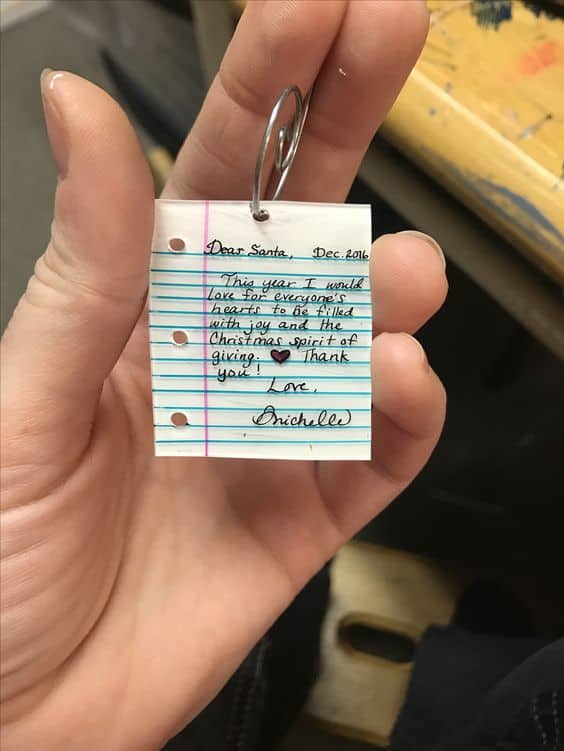 Dear Santa, Dec. 2016
This year I would
love for everyone's
hearts to be filled
with joy and the
Christmas spirit of
giving. ♥ Thank
you!
Love,
Michelle